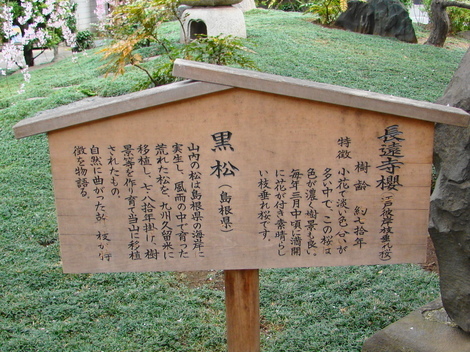 長遠寺櫻(江戸彼岸枝垂れ桜)
樹齢 約七十年
特徴 小花で淡い色合いが
多い中で、この桜は
色が濃く樹景も良い。
毎年三月中頃に満開
に花が付き素晴らし
い枝垂れ桜です。
黒松(島根県)
山内の松は島根県の海岸に
実生し、風雨の中で育った
荒れた松を、九州久留米に
移植し、七、八拾年掛け、樹
景等を作り育て当山に移植
されたもの。
自然に曲がった幹、枝が
徴を物語る。